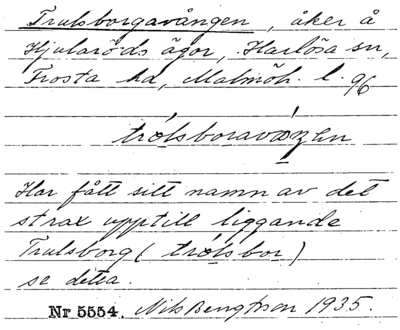 Trulsborgavången, åker å
Hjularöds ägor, Harlösa sn,
Frosta hd, Malmöh. l. 96
trólsboravóŋen
Har fått sitt namn av det
strax upptill liggande
Trulsborg (trólsbor)
se detta.
Nr 5554. Nils Bengtson 1935.